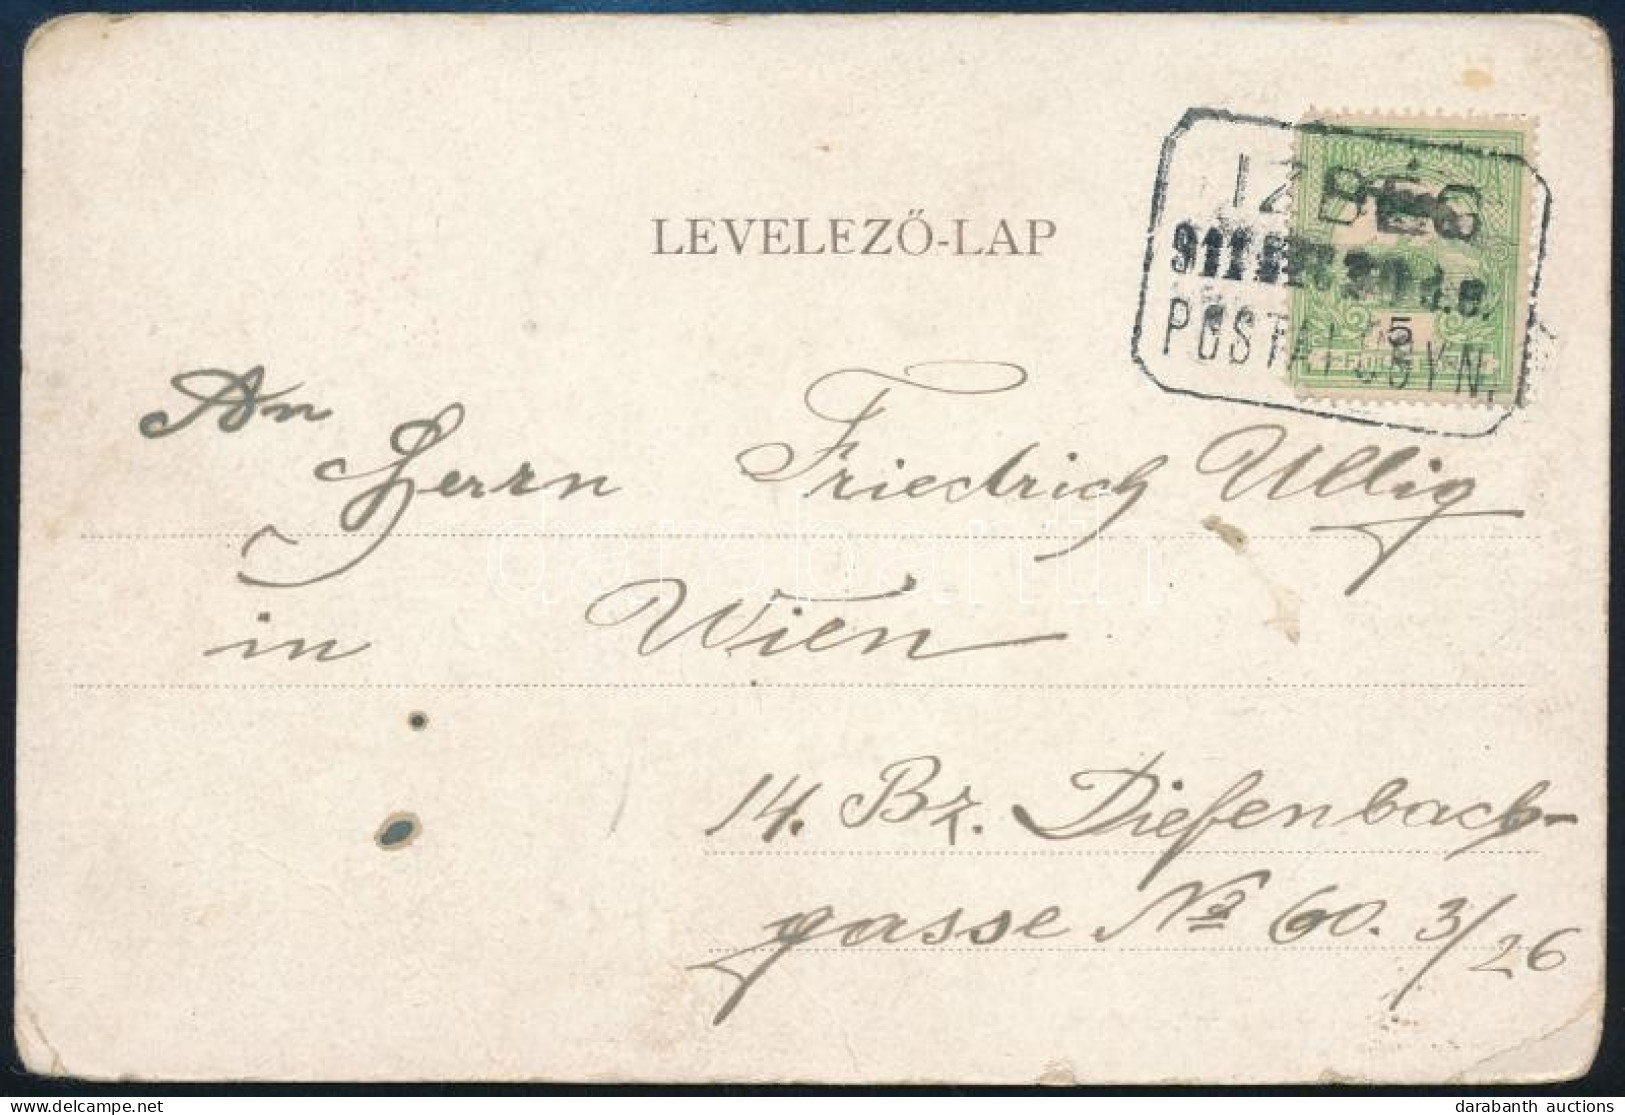 LEVELEZŐ-LAP
IZBÉG
911
POSTAI ÜGYN.
5
An
Herrn Friedrich Ullig
in Wien
14. Bz. Diefenbach-
gasse No 60. 3/26
darabanth
delcampe.net
darabanth auctions